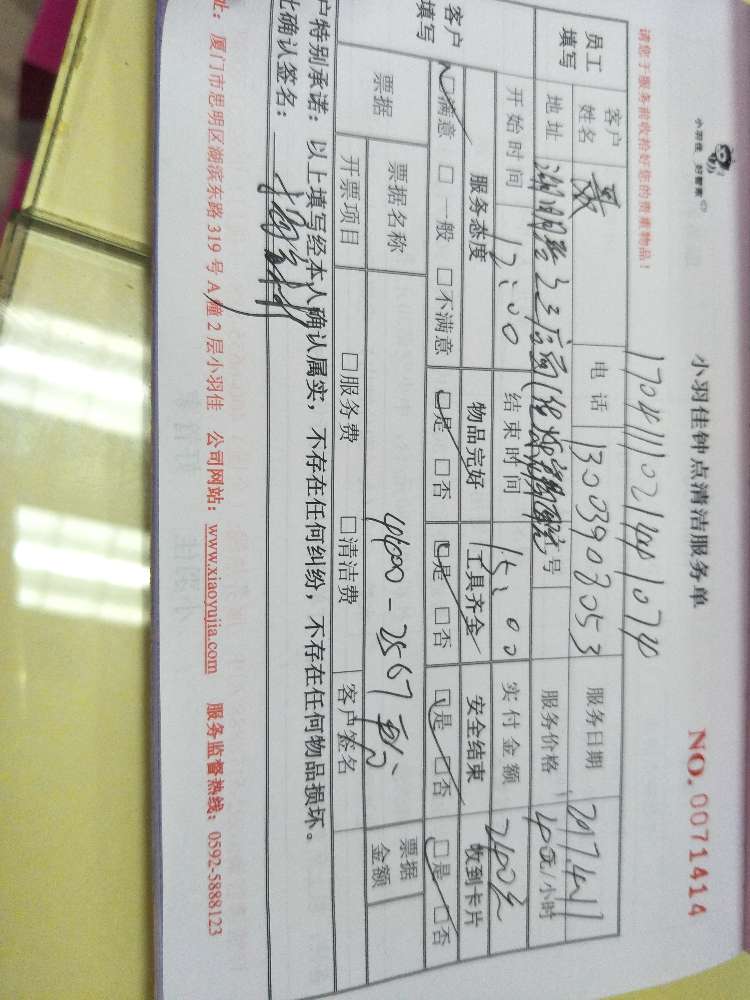 小羽佳 好管家
小羽佳钟点清洁服务单
NO. 0071414
请您于服务前收拾好您的贵重物品!
员工填写
客户姓名
电话 13003903053
服务日期
地址
号
服务价格 40元/小时
开始时间 12:00
结束时间 15:00
实付金额
客户填写
服务态度 物品完好 工具齐全 安全结束 收到卡片
□满意 □一般 □不满意 □是 □否 □是 □否 □是 □否 □是 □否
票据
票据名称
票据金额
开票项目 □服务费 □清洁费 客户签名
户特别承诺:以上填写经本人确认属实,不存在任何纠纷,不存在任何物品损坏。
比确认签名:
址:厦门市思明区湖滨东路 319 号 A 幢 2 层小羽佳 公司网站:www.xiaoyujia.com 服务监督热线:0592-5888123